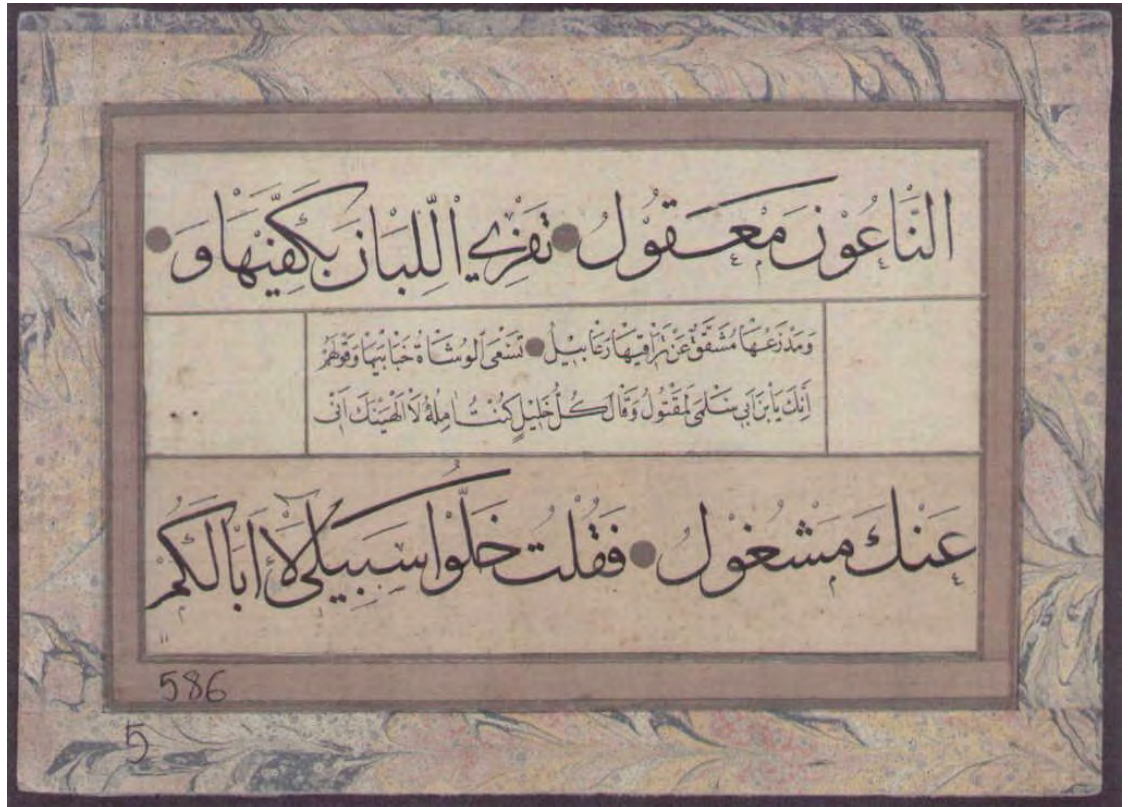 النَّاعُوْنَ مَعْقُوْلُ تَفْرِي اللِّبَانَ بِكَفَّيْهَا وَ
وَمَدْرَعُهَا مُشَقَّقٌ عَنْ تَرَاقِيْهَا رَعَابِيْلُ تَسْعَى الْوُشَاةُ جَنَابَيْهَا وَقَوْلُهُمْ
اِنَّكَ يَا بْنَ اَبِي سُلْمَى لَمَقْتُولُ وَقَالَ كُلُّ خَلِيْلٍ كُنْتُ اٰمُلُهُ لَا اُلْهِيَنَّكَ اِنِّي
عَنْكَ مَشْغُوْلُ فَقُلْتُ خَلُّوْا سَبِيْلِي لَا اَبَا لَكُمُ
586
5